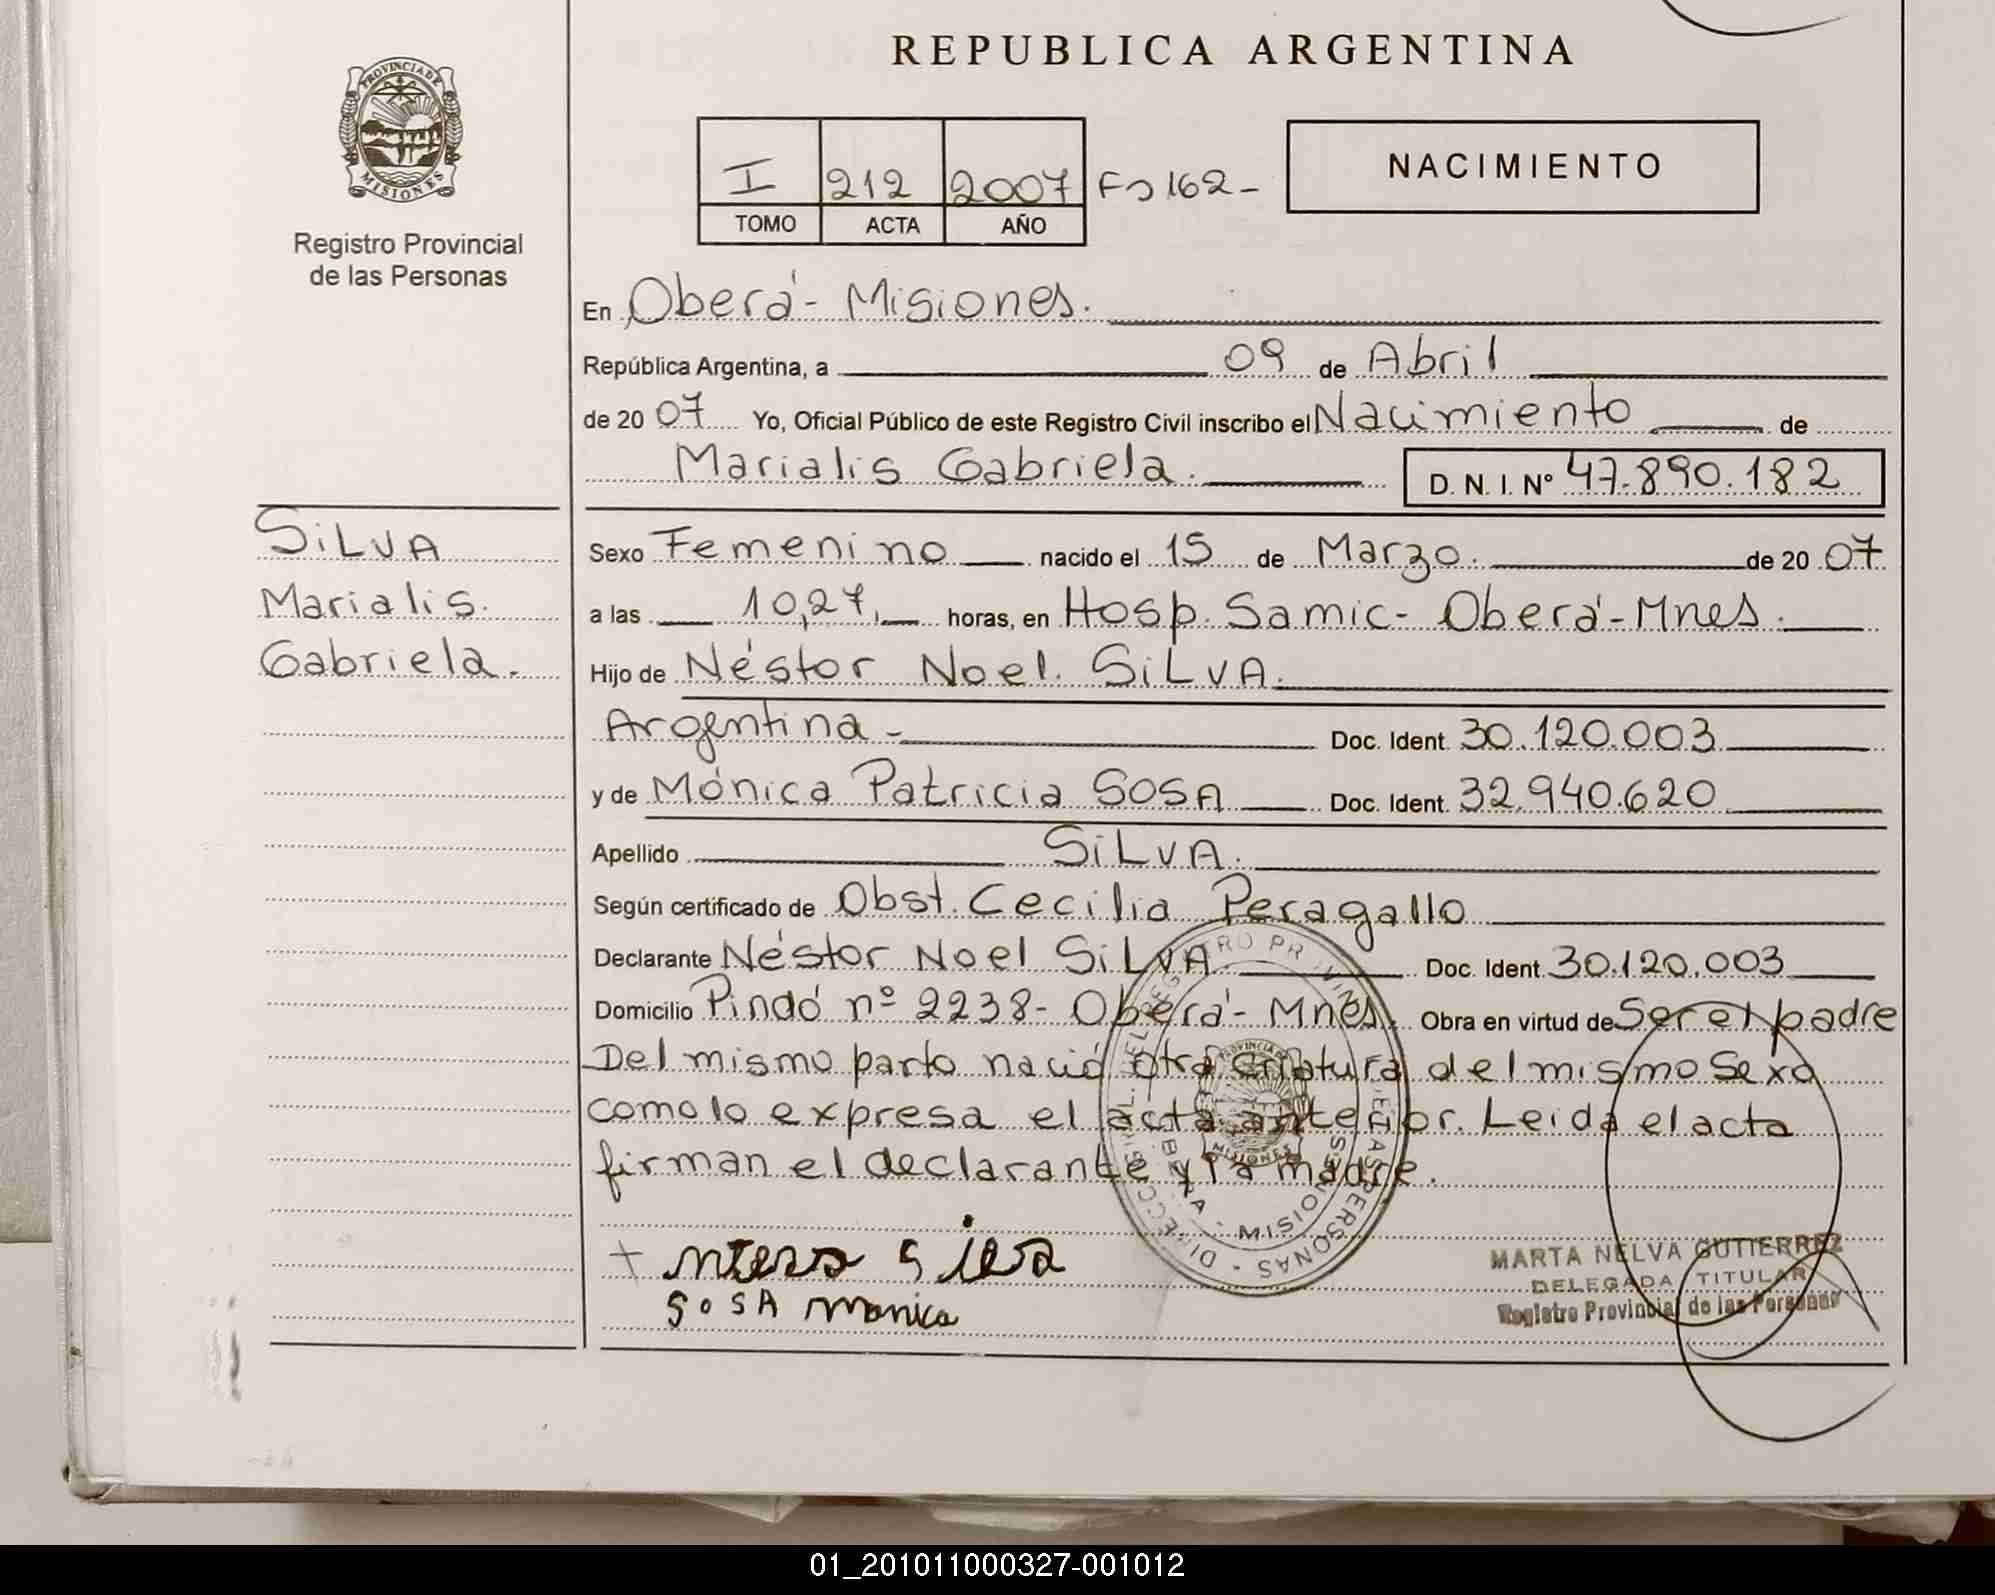 REPUBLICA ARGENTINA
PROVINCIA DE
MISIONES
Registro Provincial
de las Personas
I 212 2007 Fº 162-
TOMO ACTA AÑO
NACIMIENTO
En Oberá- Misiones.
República Argentina, a 09 de Abril
de 2007 Yo, Oficial Público de este Registro Civil inscribo el Nacimiento de
Marialis Gabriela. D. N. I. Nº 47.890.182
SiLVA
Marialis.
Gabriela.
Sexo Femenino nacido el 15 de Marzo. de 2007
a las 10,27, horas, en Hosp. Samic- Oberá-Mnes.
Hijo de Néstor Noel. SiLVA.
Argentina- Doc. Ident. 30.120.003
y de Mónica Patricia SOSA Doc. Ident. 32.940.620
Apellido SiLVA.
Según certificado de Obst. Cecilia Peragallo
Declarante Néstor Noel SiLVA Doc. Ident. 30.120.003
Domicilio Pindó nº 2238- Oberá- Mnes. Obra en virtud de Ser el padre
Del mismo parto nació otra criatura del mismo Sexo
como lo expresa el acta anterior. Leida el acta
firman el declarante y la madre.
SOSA monica
MARTA NELVA GUTIERREZ
DELEGADA TITULAR
Registro Provincial de las Personas
PROVINCIA DE
MISIONES
01_201011000327-001012